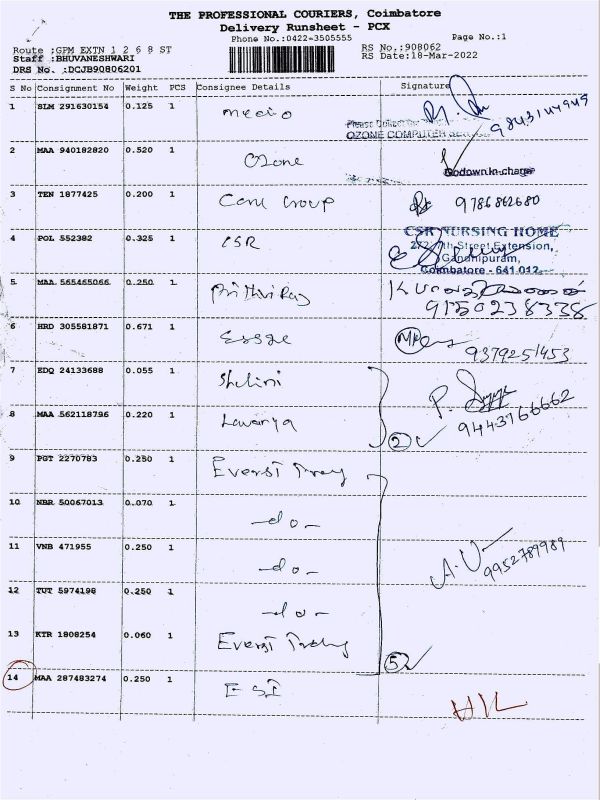 THE PROFESSIONAL COURIERS, Coimbatore
Delivery Runsheet - PCX
Phone No.:0422-3505555
Page No.:1
Route :GPM EXTN 1 2 6 8 ST
RS No.:908062
Staff :BHUVANESHWARI
RS Date:18-Mar-2022
DRS No. :DCJB90806201
S No Consignment No Weight PCS Consignee Details Signature
1 SLM 291630154 0.125 1 Medio 9843144949
OZONE COMPUTER
2 MAA 940182820 0.520 1 Ozone Godown In-charge
3 TEN 1877425 0.200 1 Care Group 9786862680
4 POL 552382 0.325 1 CSR
CSR NURSING HOME
272, 7th Street Extension,
Gandhipuram,
Coimbatore - 641 012
5 MAA 565465066 0.250 1 Prithviraj 9150238338
6 HRD 305581871 0.671 1 Essae 9379251453
7 EDQ 24133688 0.055 1 Shalini
8 MAA 562118796 0.220 1 Lavanya 2 P. 9443766662
9 PGT 2270783 0.250 1 Everst
10 NBR 50067013 0.070 1 -do-
11 VNB 471955 0.250 1 -do- A.V 9952789989
12 TUT 5974198 0.250 1 -do-
13 KTR 1808254 0.060 1 Everst 5
14 MAA 287483274 0.250 1 ESI